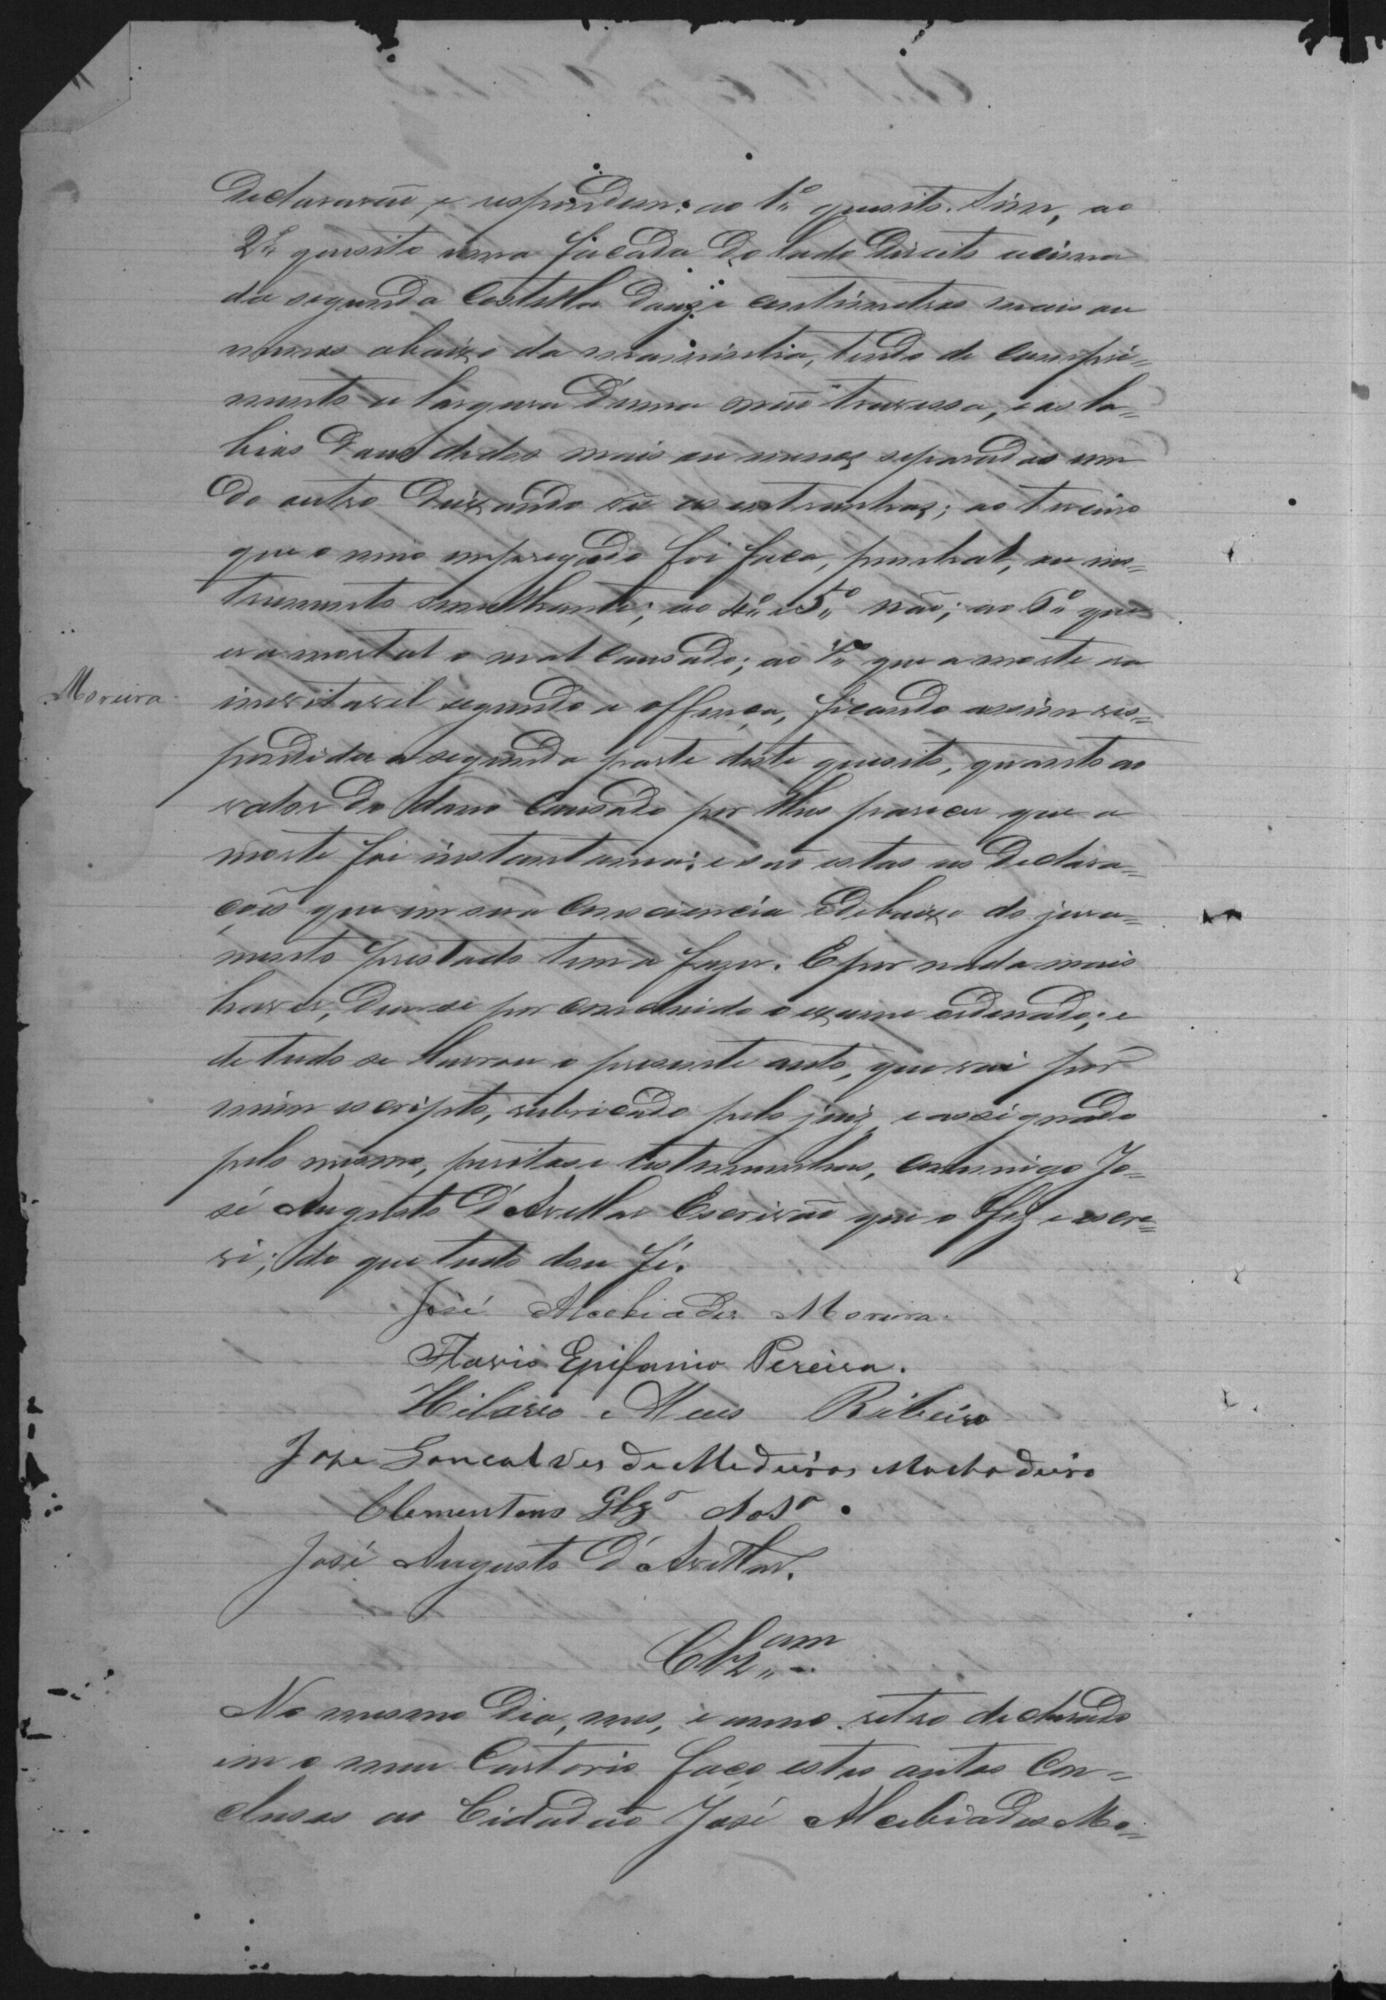 declaração, e respondem: ao 1º quesito. Sim, ao
2º quesito uma facada do lado direito acima
da segunda Costella douze centimetros mais ou
menos abaixo da maminha, tendo de Compri=
mento a largura d'uma mão travessa, e as la=
bias dous dedos mais ou menos separadas um
do outro deixando vêr as entranhas; ao terceiro
que o meio empregado foi faca, punhal, ou ins=
trumento semelhante; ao 4º e 5º não; ao 6º que
era mortal o mal Causado; ao 7º que a morte era
Moreira
inevitavel segundo a offença, ficando assim res=
pondida a segunda parte deste quesito, quanto ao
valor do dano Causado por lhes parecer que a
morte foi instantania; e são estas as declara=
ções que em sua Consciencia e debaixo do jura=
mento prestado tem a fazer. E por nada mais
haver, deu-se por Concluido o exame ordenado; e
de tudo se lavrou o presente auto, que vai por
mim escripto, rubricado pelo juiz, e assignado
pelo mesmo, peritos e testemunhas, comnigo Jo=
sé Augusto d'Avellar Escrivão que o fiz e escre=
vi; do que tudo dou fé.
José Alcebiades Moreira.
Flavio Epifanio Pereira.
Hilario Ribeiro
Joze Goncalves de Medeiros Machadeiro
Clementino Glz
José Augusto d'Avellar.
Clzam
No mesmo dia, mes, e anno retro declarado
em o meu Cartorio faço estes autos Con=
clusos ao Cidadão José Alcebiades Mo=